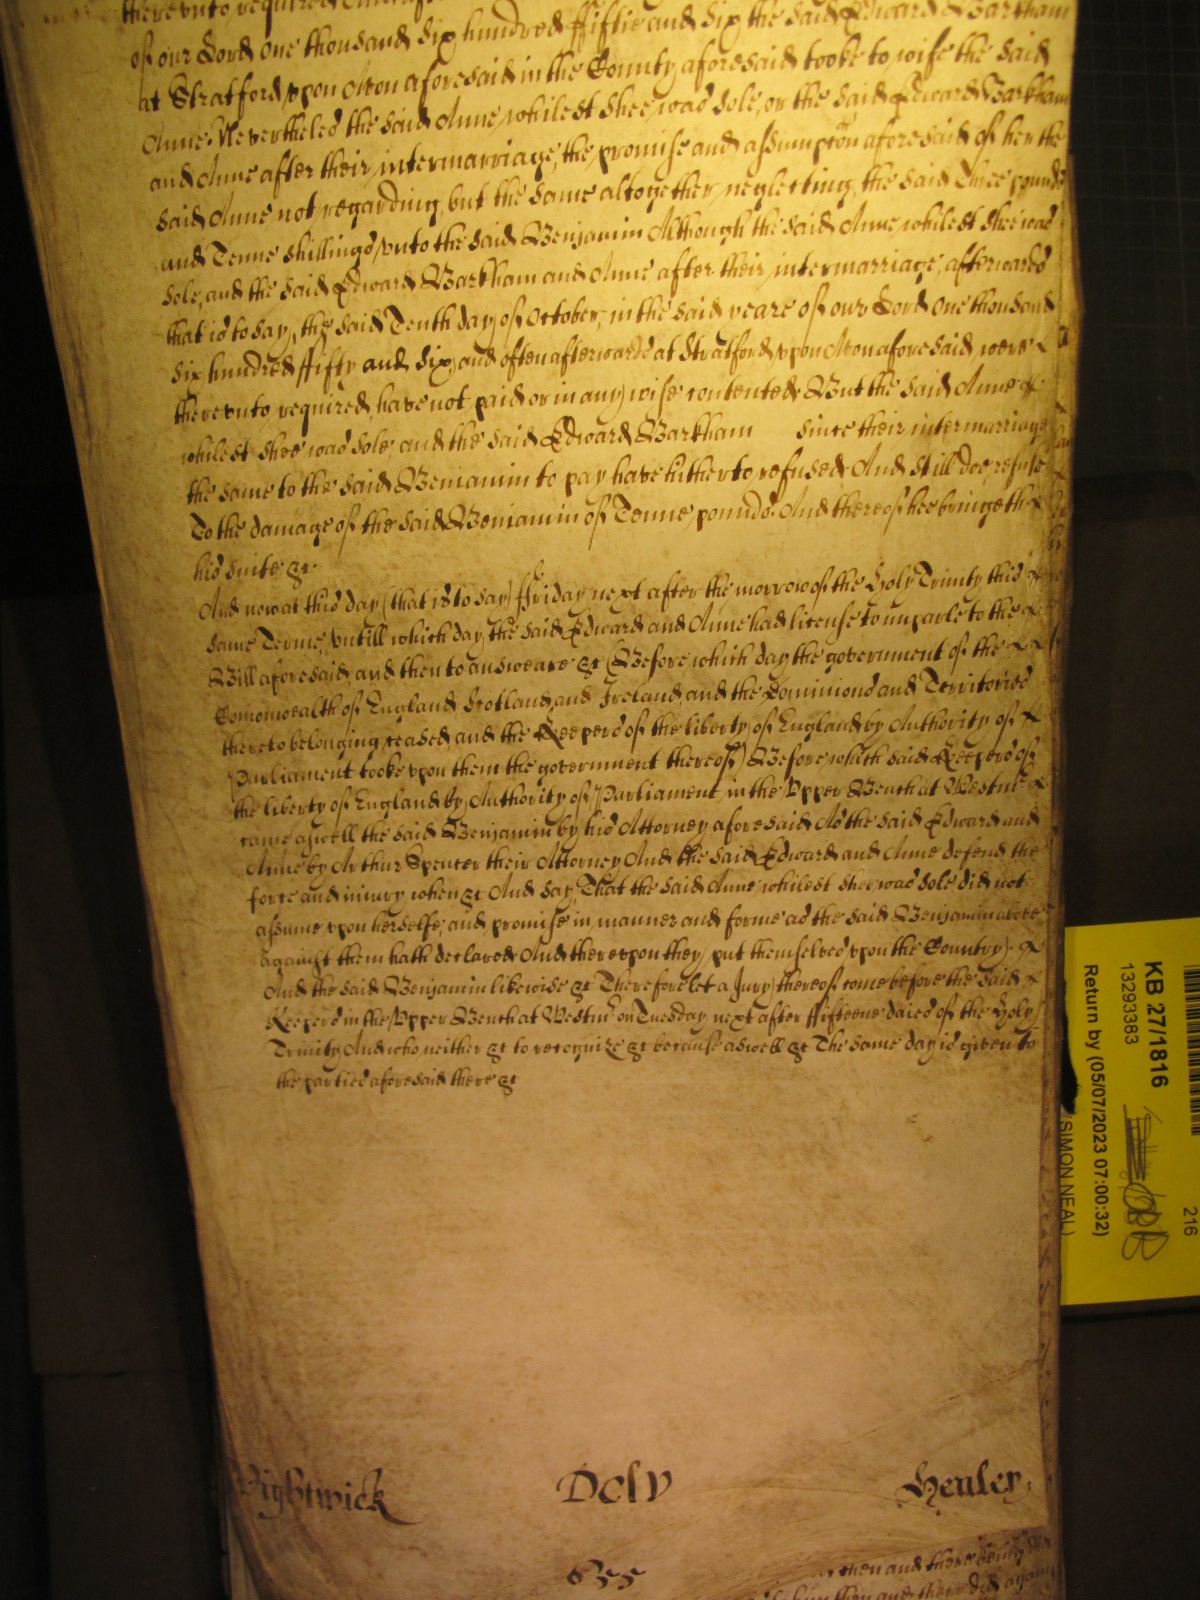 therevnto required
of our Lord one thousand six hundred ffiftie and six the said Edward Barkham
at Stratford vpon Avon aforesaid in the County aforesaid tooke to wife the said
Anne. Nevertheles the said Anne whilest shee was sole, or the said Edward Barkham
and Anne after their intermarriage, the promise and assumpton aforesaid of her the
said Anne not regarding, but the same altogether neglecting, the said Three pounds
and Tenne shillings vnto the said Benjamin Although the said Anne whilest shee was
sole, and the said Edward Barkham and Anne after their intermarriage, afterwards
that is to say, the said Tenth day of October, in the said yeare of our Lord one thousand
six hundred ffifty and six, and often afterwards at Stratford vpon Avon aforesaid were
therevnto required, have not paid or in any wise contented But the said Anne
whilest shee was sole, and the said Edward Barkham since their intermarriage
the same to the said Beniamin to pay have hitherto refused And still doe refuse
To the damage of the said Beniamin of Tenne pounds. And thereof hee bringeth
his suite &c.
And now at this day (that is to say) ffriday next after the morrow of the Holy Trinity this
same Terme, vntill which day the said Edward and Anne had license to imparle to the
Bill aforesaid, and then to answeare &c (Before which day the government of the
Comonwealth of England Scotland and Ireland, and the Dominions and Territories
thereto belonging ceased, and the Keepers of the liberty of England by Authority of
Parliament tooke vpon them the government thereof) Before which said Keepers of
the liberty of England by Authority of Parliament, in the Vpper Bench at Westmr
came aswell the said Benjamin by his Attorney aforesaid As the said Edward and
Anne by Arthur Spencer their Attorney And the said Edward and Anne defend the
force and iniury when &c And say, That the said Anne whilest shee was sole did not
assume vpon herselfe, and promise in manner and forme as the said Benjamin above
against them hath declared And therevpon they put themselves vpon the Country.
And the said Benjamin likewise &c Therefore let a Jury thereof come before the said
Keepers in the Vpper Bench at Westmr on Tuesday next after ffifteene daies of the Holy
Trinity And who neither &c to recognize &c because aswell &c The same day is given to
the parties aforesaid there &c
Dclv
Henley
655
then and there being
KB 27/1816
13293383
Return by (05/07/2023 07:00:32)
(SIMON NEAL)
216